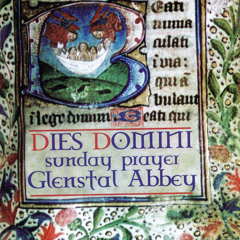 Beati
culati
i via:
qui ā
bulant
i lege domini Beati qui
DIES DOMINI
sunday prayer
Glenstal Abbey